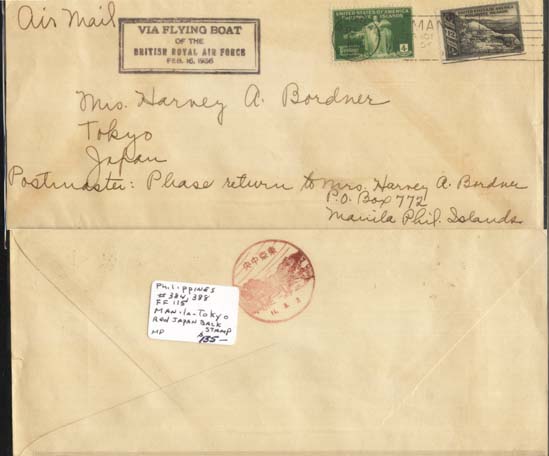 Air Mail
VIA FLYING BOAT
OF THE
BRITISH ROYAL AIR FORCE
FEB. 16, 1936
UNITED STATES OF AMERICA
PHILIPPINE ISLANDS
4
MAN
Mrs. Harvey A. Bordner
Tokyo
Japan
Postmaster: Please return to Mrs. Harvey A. Bordner
P.O. Box 772
Manila Phil. Islands
Philippines
# 384, 388
FF 115
MAN-la-Tokyo
Red JAPAN BACK
STAMP
MP
$135-